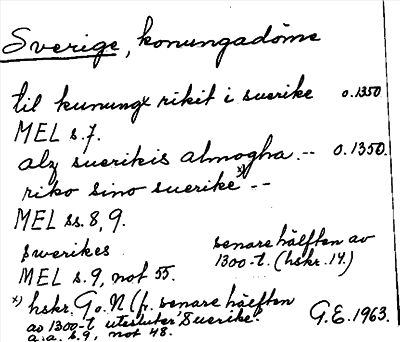 Sverige, konungadöme
til kunungx rikit i suerike o.1350
MEL s.7.
alz suerikis almogha.-- o.1350.
riko sino suerike*) --
MEL ss. 8, 9.
swerikes senare hälften av
MEL s. 9, not 55. 1300-t. (hskr. 14.)
*) hskr. G o. N (fr. senare hälften
av 1300-t utesluter "Suerike". G.E. 1963.
a.a. s.9, not 48.